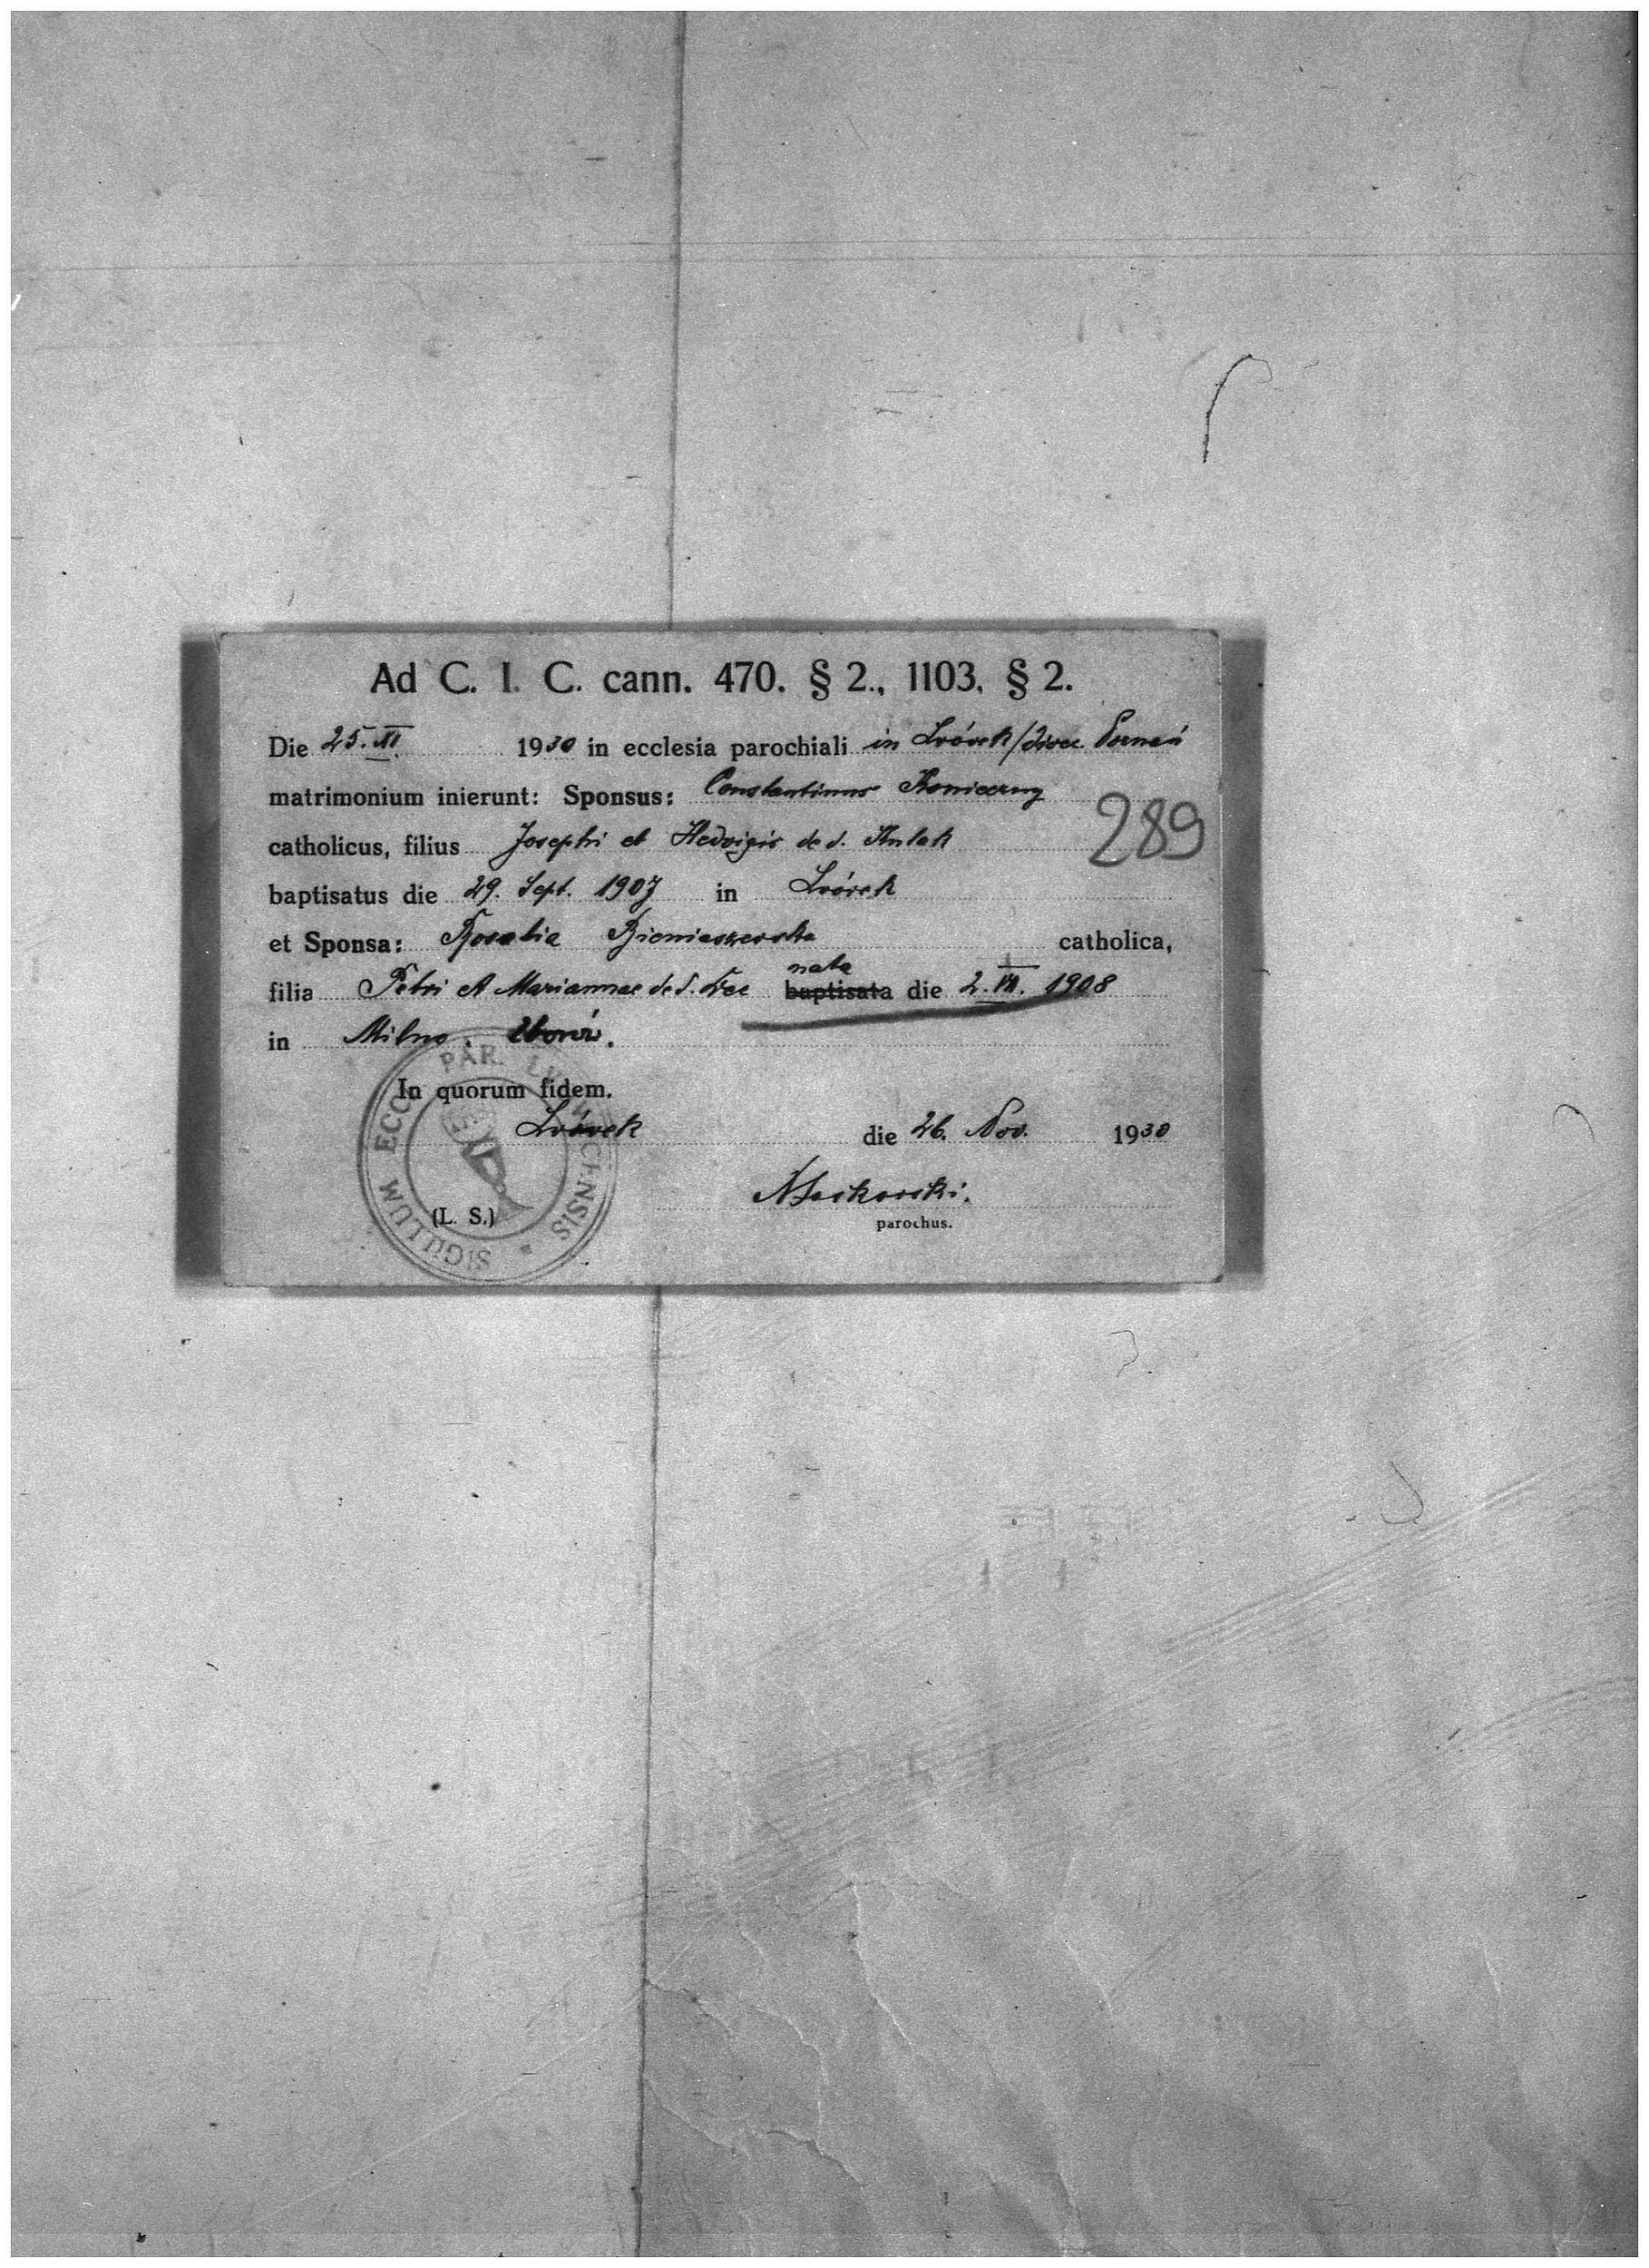 Ad C. I. C. cann. 470. § 2., 1103. § 2.
Die 25. XI. 1930 in ecclesia parochiali in Lwówek/diœc. Poznań
matrimonium inierunt: Sponsus: Constantinus Konieczny
289
catholicus, filius Josephi et Hedvigis de d.
baptisatus die 29. Sept. 1907 in Lwówek
et Sponsa: Rosalia Bieniaszewska catholica,
nata
filia Petri et Mariannae de d. baptisata die 2. VII. 1908
in Milno.
In quorum fidem.
Lwówek die 26. Nov. 1930
(L. S.)
parochus.
SIGILLUM ECCL. PAR.